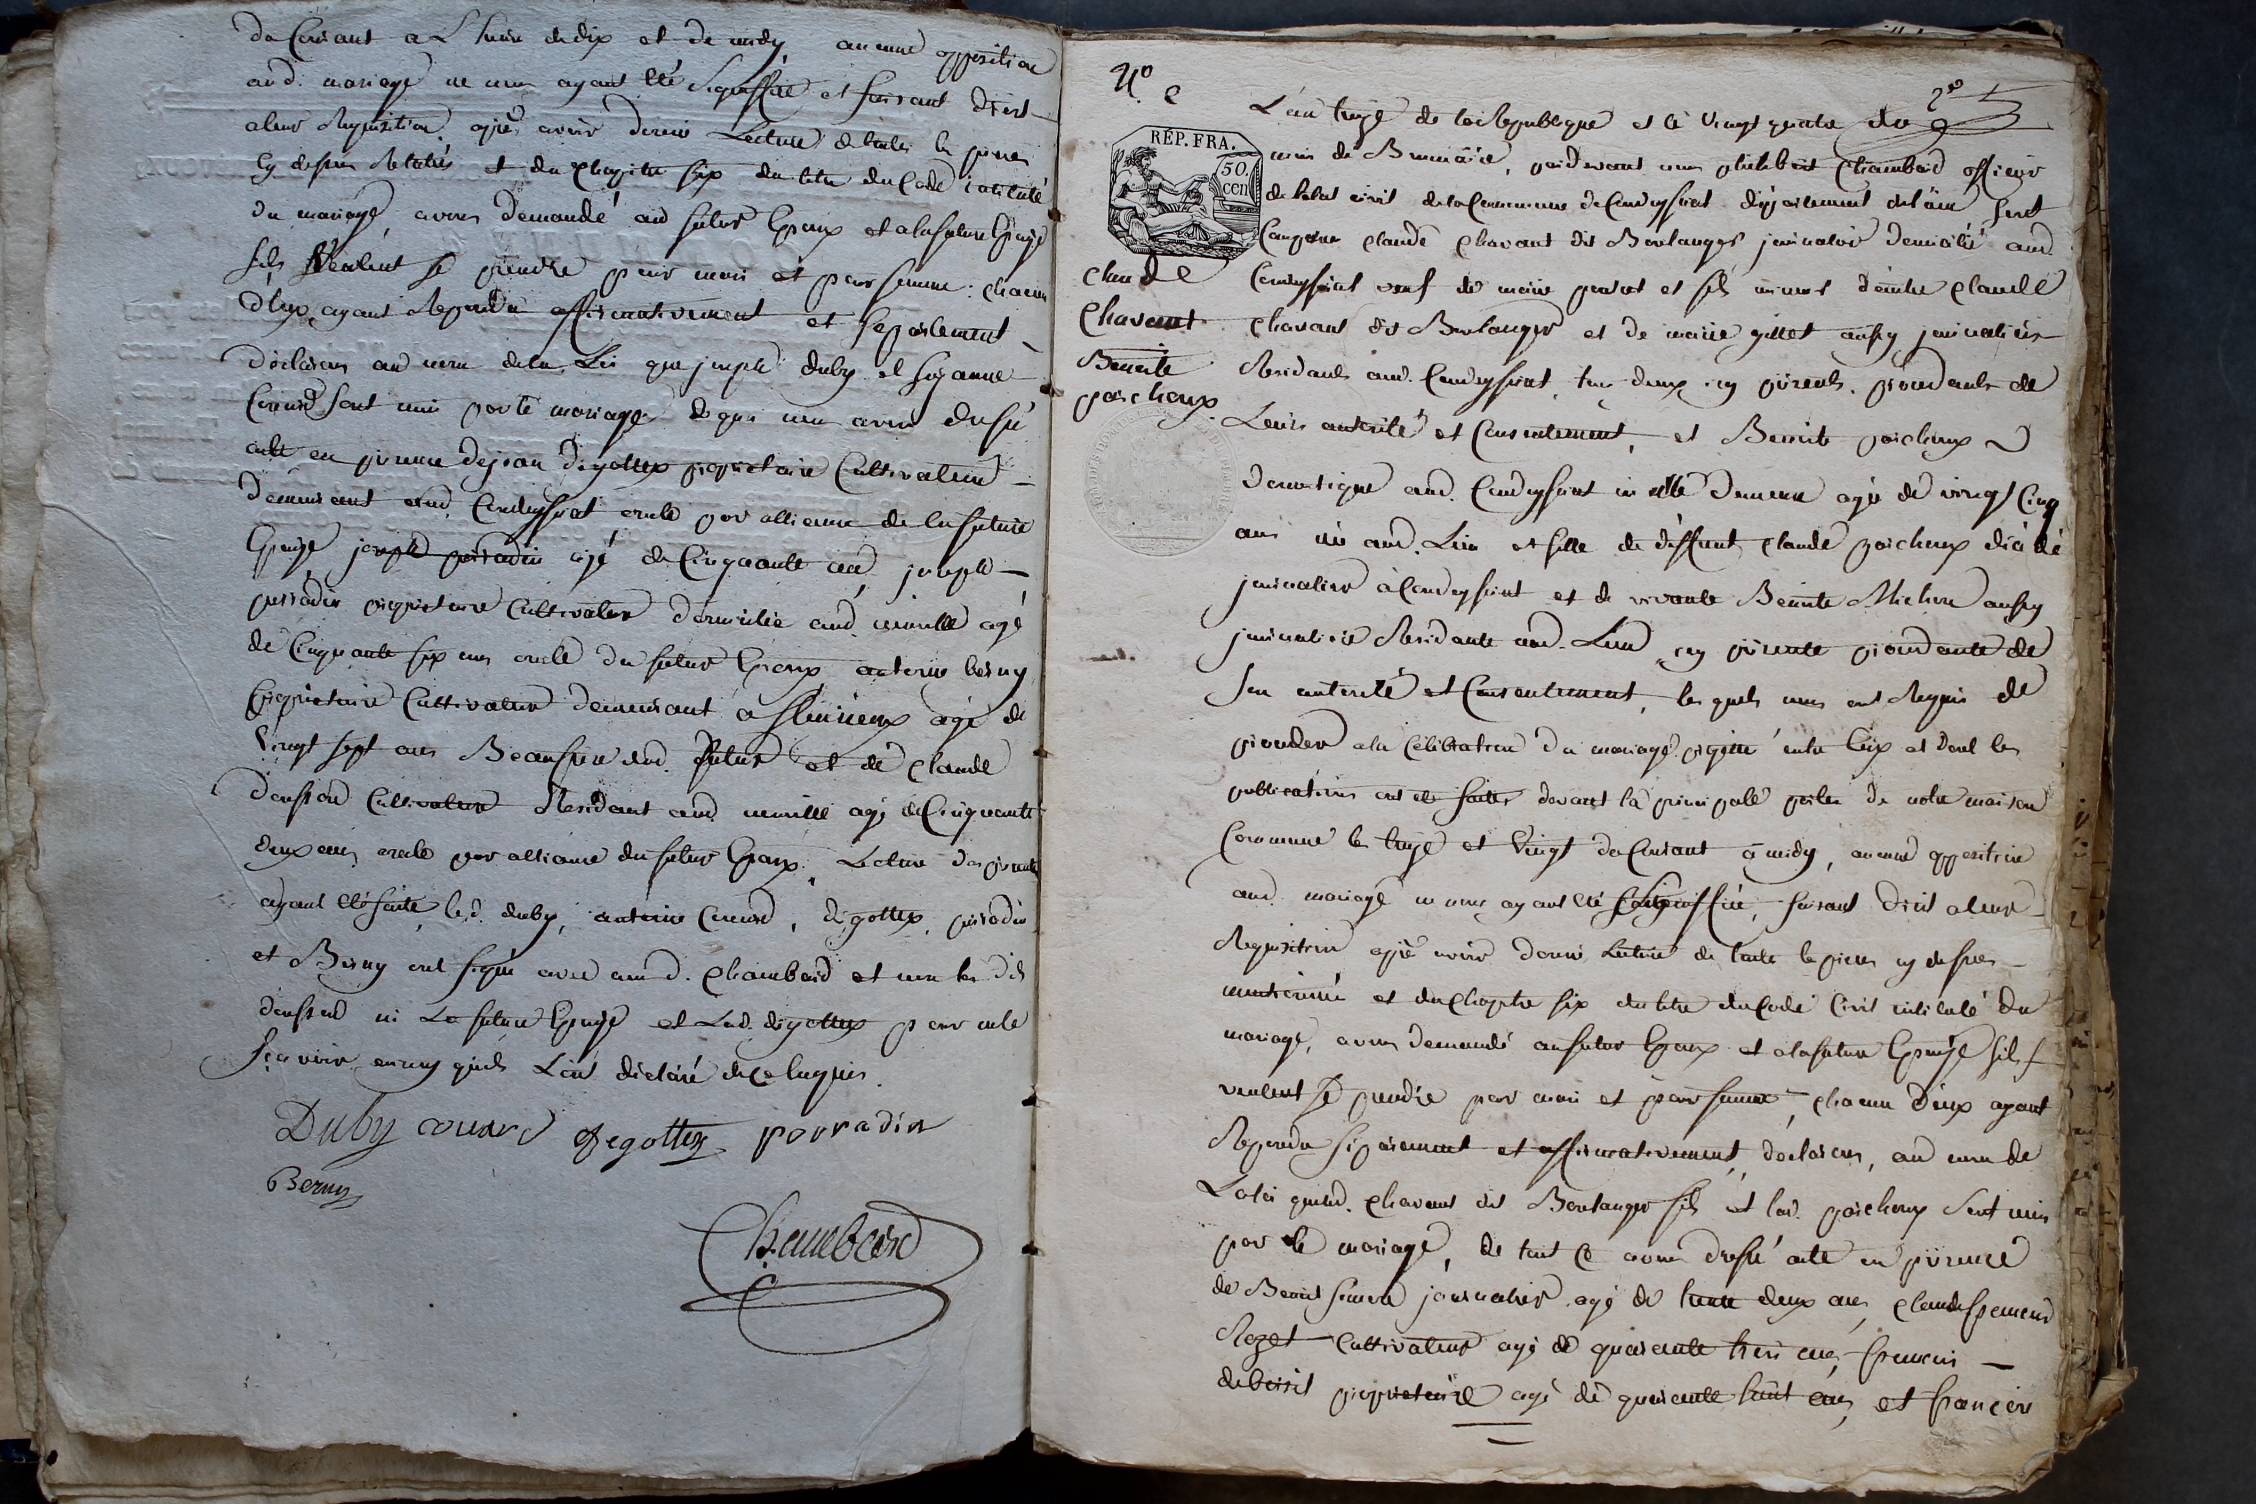 du Courant a L'heure de dix et de midy aucune opposition
aud. mariage ne nous ayant été Signiffiée et faisant droit
a leur Requisition, après avoir donné Lecture de toutes les pieces
cy dessus Relatés et du chapitre six du titre du Code intitulé
du mariage avons demandé au futur Epoux et a la future Epouse
s'ils veulent se prendre pour mari et pour femme : chacun
d'eux ayant Repondu affirmativement et separement
déclarons au nom de la Loi que joseph duby et suzanne
Couard sont unis par le mariage de quoi nous avons dressé
acte en presence de jean degottex proprietaire Cultivateur
demeurant aud. Condeyssiat oncle par allience de la future
Epouse joseph perradin agé de Cinquante ans, joseph
perradin proprietaire Cultivateur domicilié aud. neuville agé
de Cinquante six ans oncle du futur Epoux antoine berny
proprietaire Cultivateur demeurant a fleurieux agé de
vingt sept ans Beaufrere dud. futur et de claude
Cultivateur Residant aud. neuville agé de Cinquante
deux ans oncle par alliance du futur Epoux. Lecture des presentes
ayant été faite, led. duby, antoine Couard, degottex, perradin
et Berny ont signé avec nous d. Chambard et non les dits
ni La future Epouse et Lad. degottex pour ne le
sçavoir ensuy qu'ils L'ont déclaré de ce Enquis.
Duby couard degottex porradin
Berny
Chambard
N.o 2
2e
L'an treize de la Republique et le vingt quatre du
mois de Brumaire, pardevant nous philibert Chambard officier
RÉP. FRA.
50.
cen
de l'etat civil de la Commune de Condeyssiat departement de l'ain sont
Comparu claude chavant dit Boulanger journalier domicilié aud.
claude
Chavant
Benoite
poicheux
Condeyssiat veuf de marie et fils mineur d'autre claude
chavant dit Boulanger et de marie gillet aussy journaliers
Residants aud. Condeyssiat tous deux icy présents, procedants de
Leurs autorité et Consentement, et Benoite poicheux
domestique aud. Condeyssiat ou elle demeure agée de vingt Cinq
ans née aud. Lieu et fille de deffunt claude poicheux décédé
journalier a Condeyssiat et de vivante Benoite Michon aussy
journaliere Residante aud. Lieu icy présente procedante de
son autorité et Consentement, les quels nous ont Requis de
proceder a la Célébration du mariage projetté entre Eux et dont les
publications ont été faites devant la principale porte de notre maison
Commune les treize et vingt du Courant a midy, aucune opposition
aud. mariage ne nous ayant été Signiffiée, faisant droit a leur
Requisition apre avoir donné Lecture de toute les pieces cy dessus
mentionné et du chapitre six du titre du Code Civil intitulé du
mariage, avons demandé au futur Epoux et a la future Epouse s'ils
veulent se prendre pour mari et pour femme, chacun d'eux ayant
Repondu séparement et affirmativement, déclarons, au nom de
La loi que led. chavant dit Boulanger fils et lad. poicheux sont unis
par le mariage, de tout ce avons dressé acte en présence
de Benoit journalier agé de trente deux ans, claude
Rozet Cultivateur agé de quarante trois ans francois
proprietaire agé de quarante huit ans, et francois